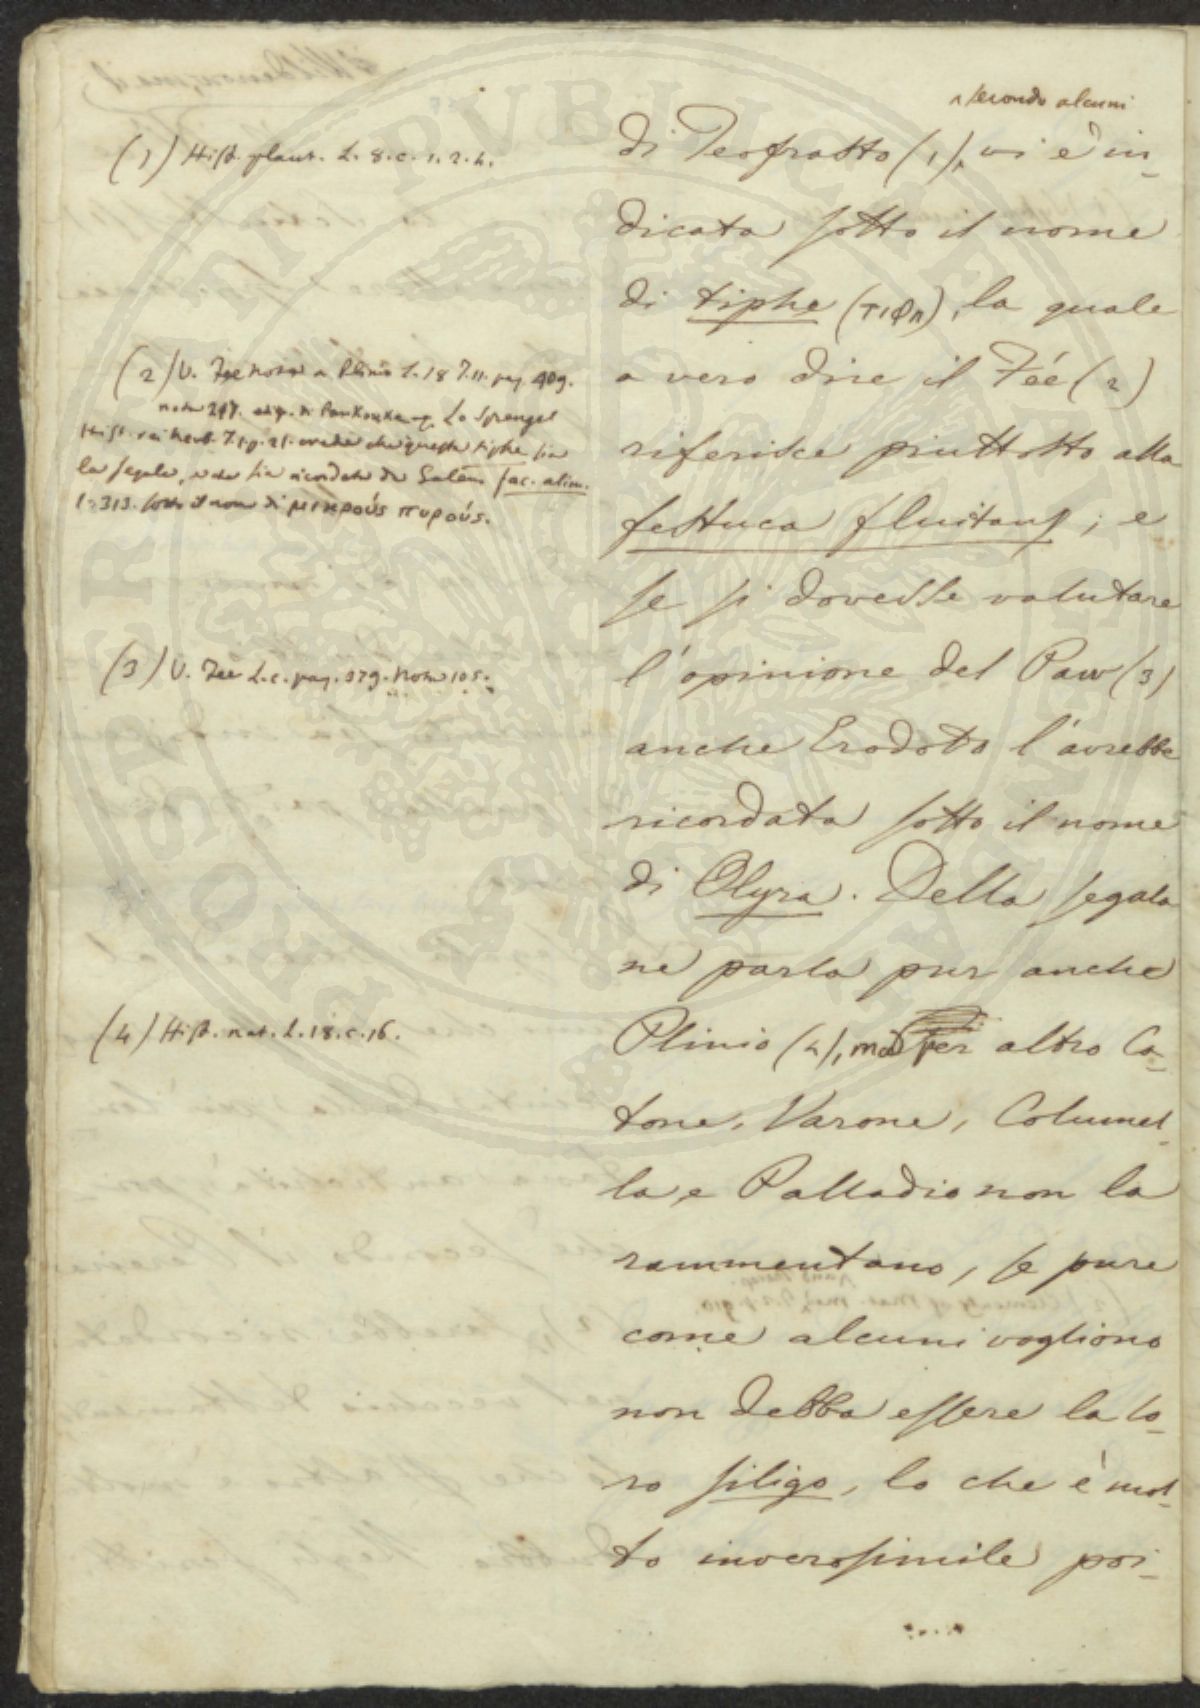 ^ secondo alcuni
di Teofrasto (1)^, vi è in-
dicata sotto il nome
di tiphe (τιφη), la quale
a vero dire il Fée (2)
riferisce piuttosto alla
festuca fluitans; e
se si dovesse valutare
l'opinione del Paw (3)
anche Erodoto l'avrebbe
ricordata sotto il nome
di Olyra. Della segala
ne parla pur anche
Plinio (4), ma per altro Ca-
tone, Varone, Columel-
la, e Palladio non la
rammentano, se pure
come alcuni vogliono
non debba essere la lo-
ro siligo, lo che è mol-
to inverosimile poi-
(1) Hist. plant. L. 8. c. 1. 2. 4.
(2) V. Fee nota a Plinio L. 18 T. 11. pag. 409.
nota 247. ediz. di Pankouke. Lo Sprengel
Hist. rei herb. T. 1. p. 21. crede che questa tiphe sia
la segala, e che sia ricordata da Galeno fac. alim.
1. 313. sotto il nome di μικρούς πυρούς.
(3) V. Fee L. c. pag. 379. nota 105.
(4) Hist. nat. L. 18. c. 16.
PROSPERITATI PUBLICAE AUGENDAE